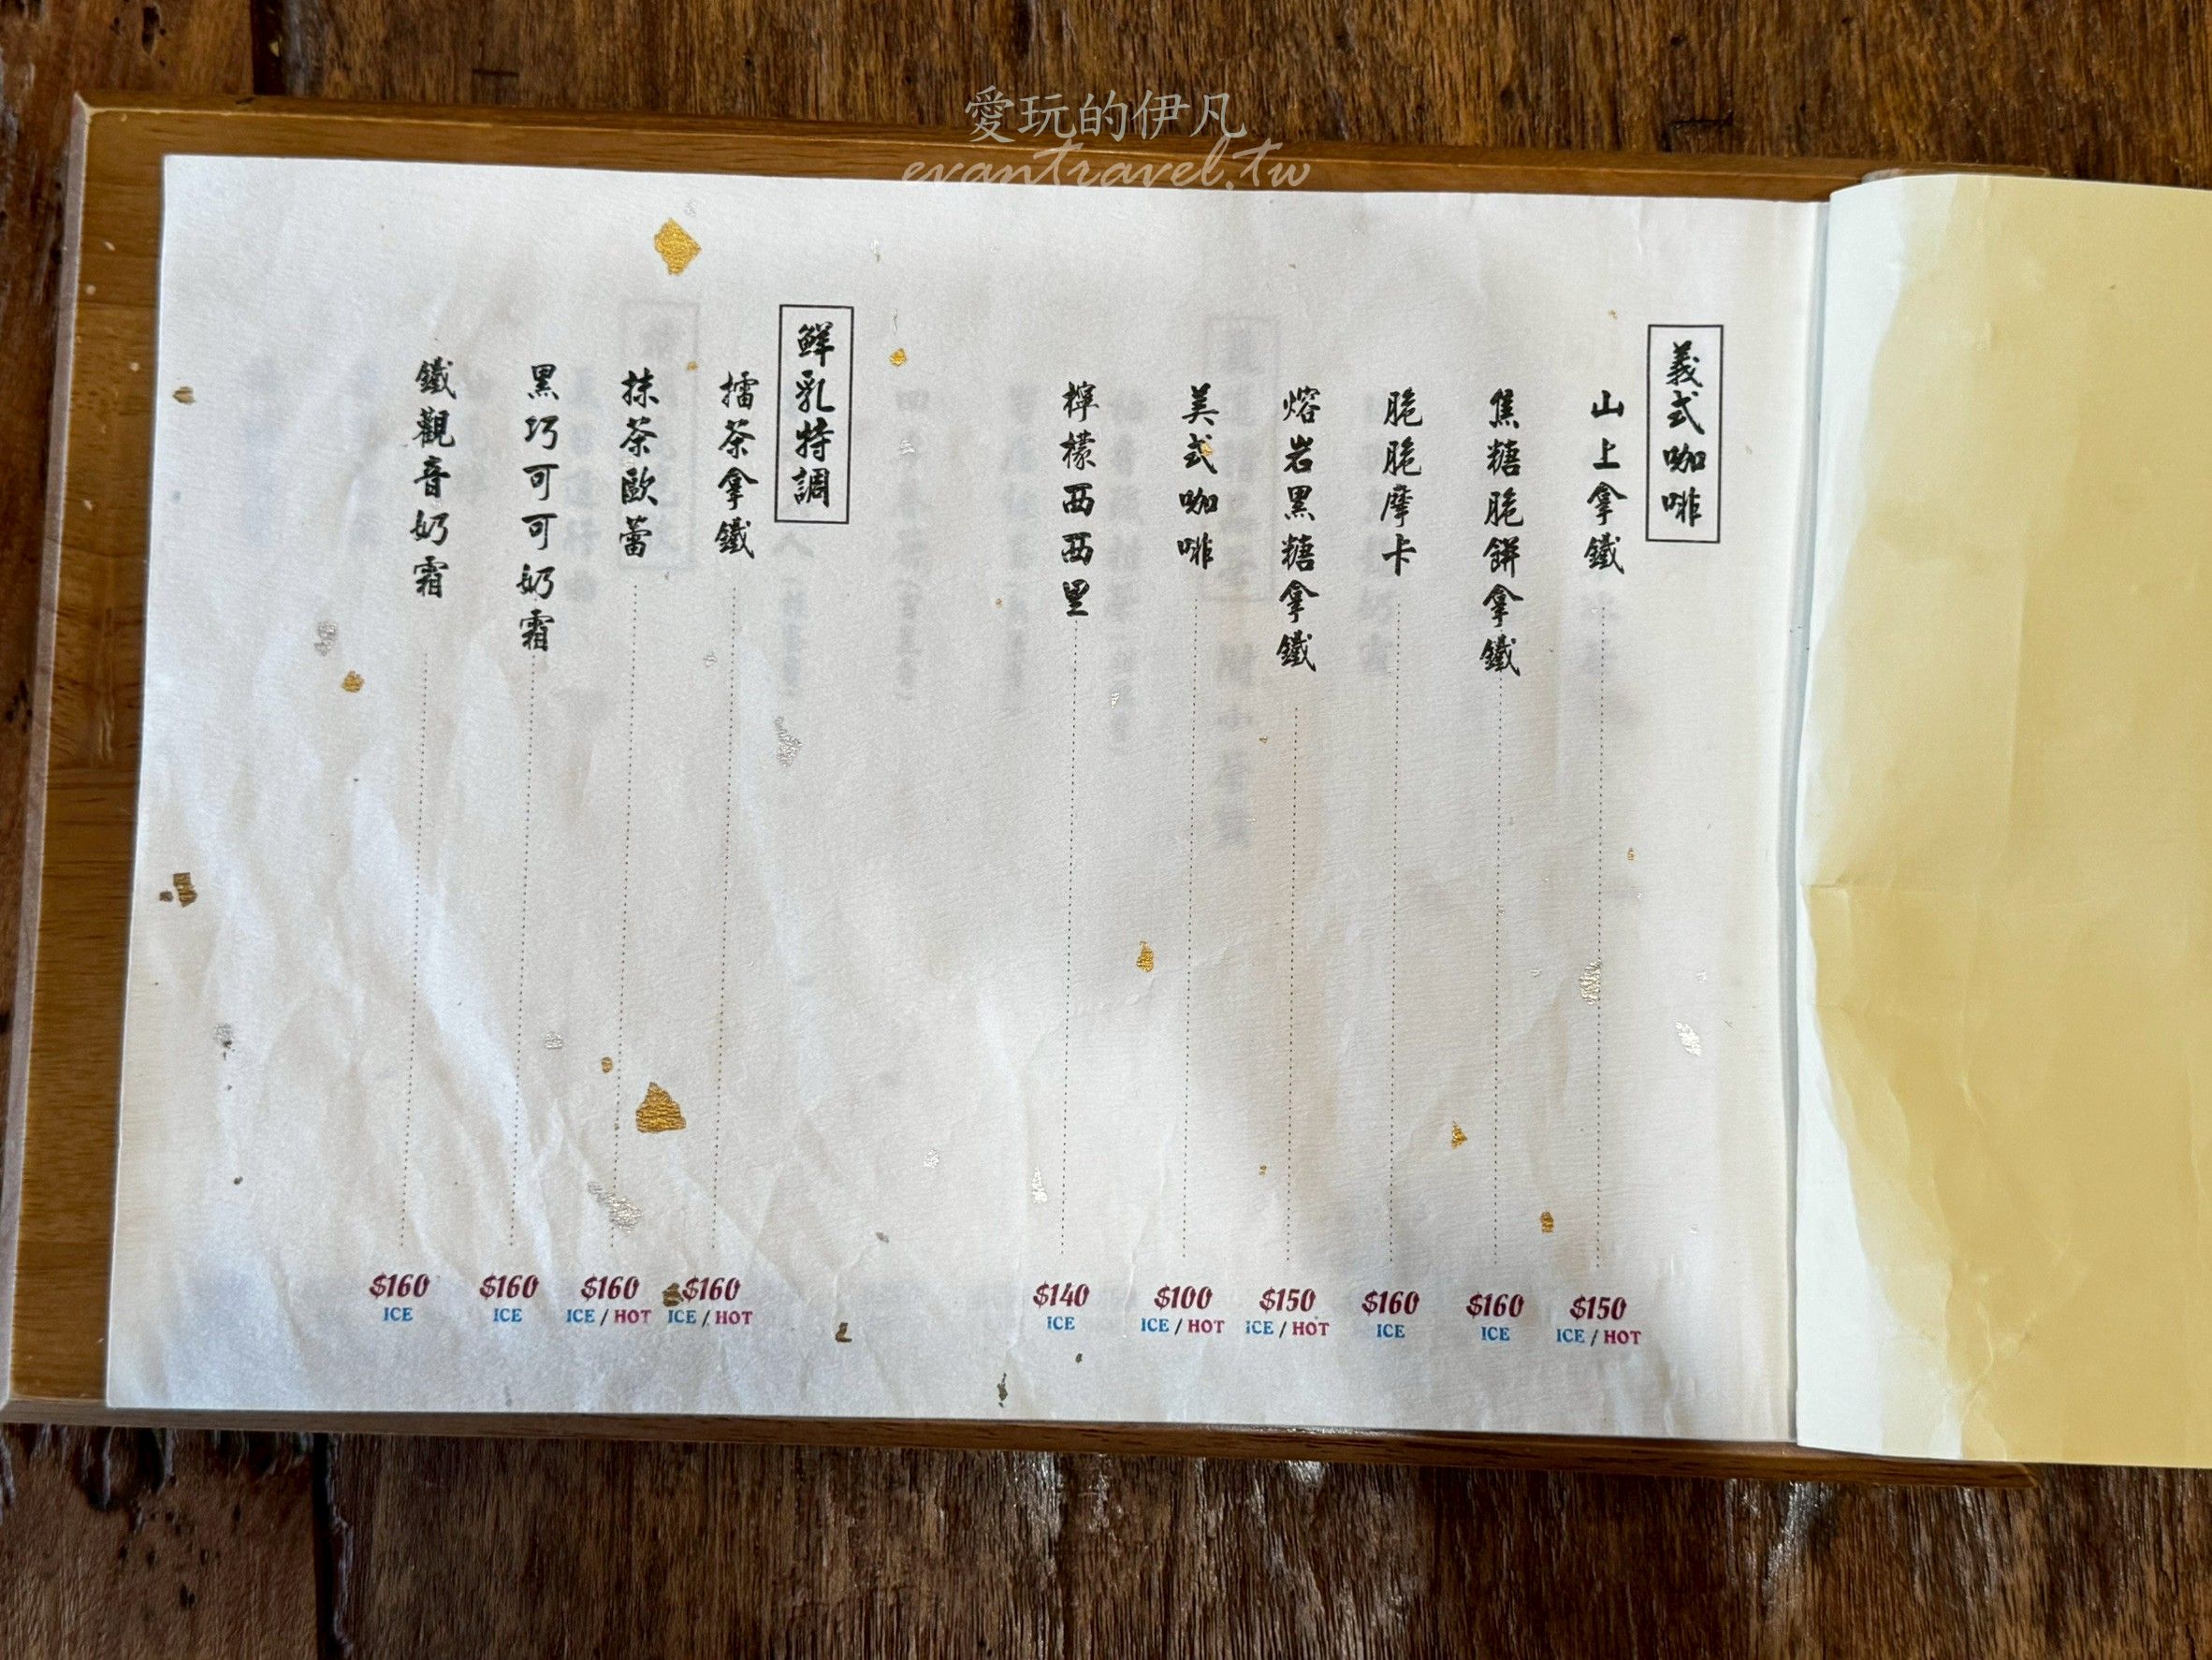 愛玩的伊凡
evantravel.tw
義式咖啡
山上拿鐵
$150
ICE / HOT
焦糖脆餅拿鐵
$160
ICE
脆脆摩卡
$160
ICE
熔岩黑糖拿鐵
$150
ICE / HOT
美式咖啡
$100
ICE / HOT
檸檬西西里
$140
ICE
鮮乳特調
擂茶拿鐵
$160
ICE / HOT
抹茶歐蕾
$160
ICE / HOT
黑巧可可奶霜
$160
ICE
鐵觀音奶霜
$160
ICE